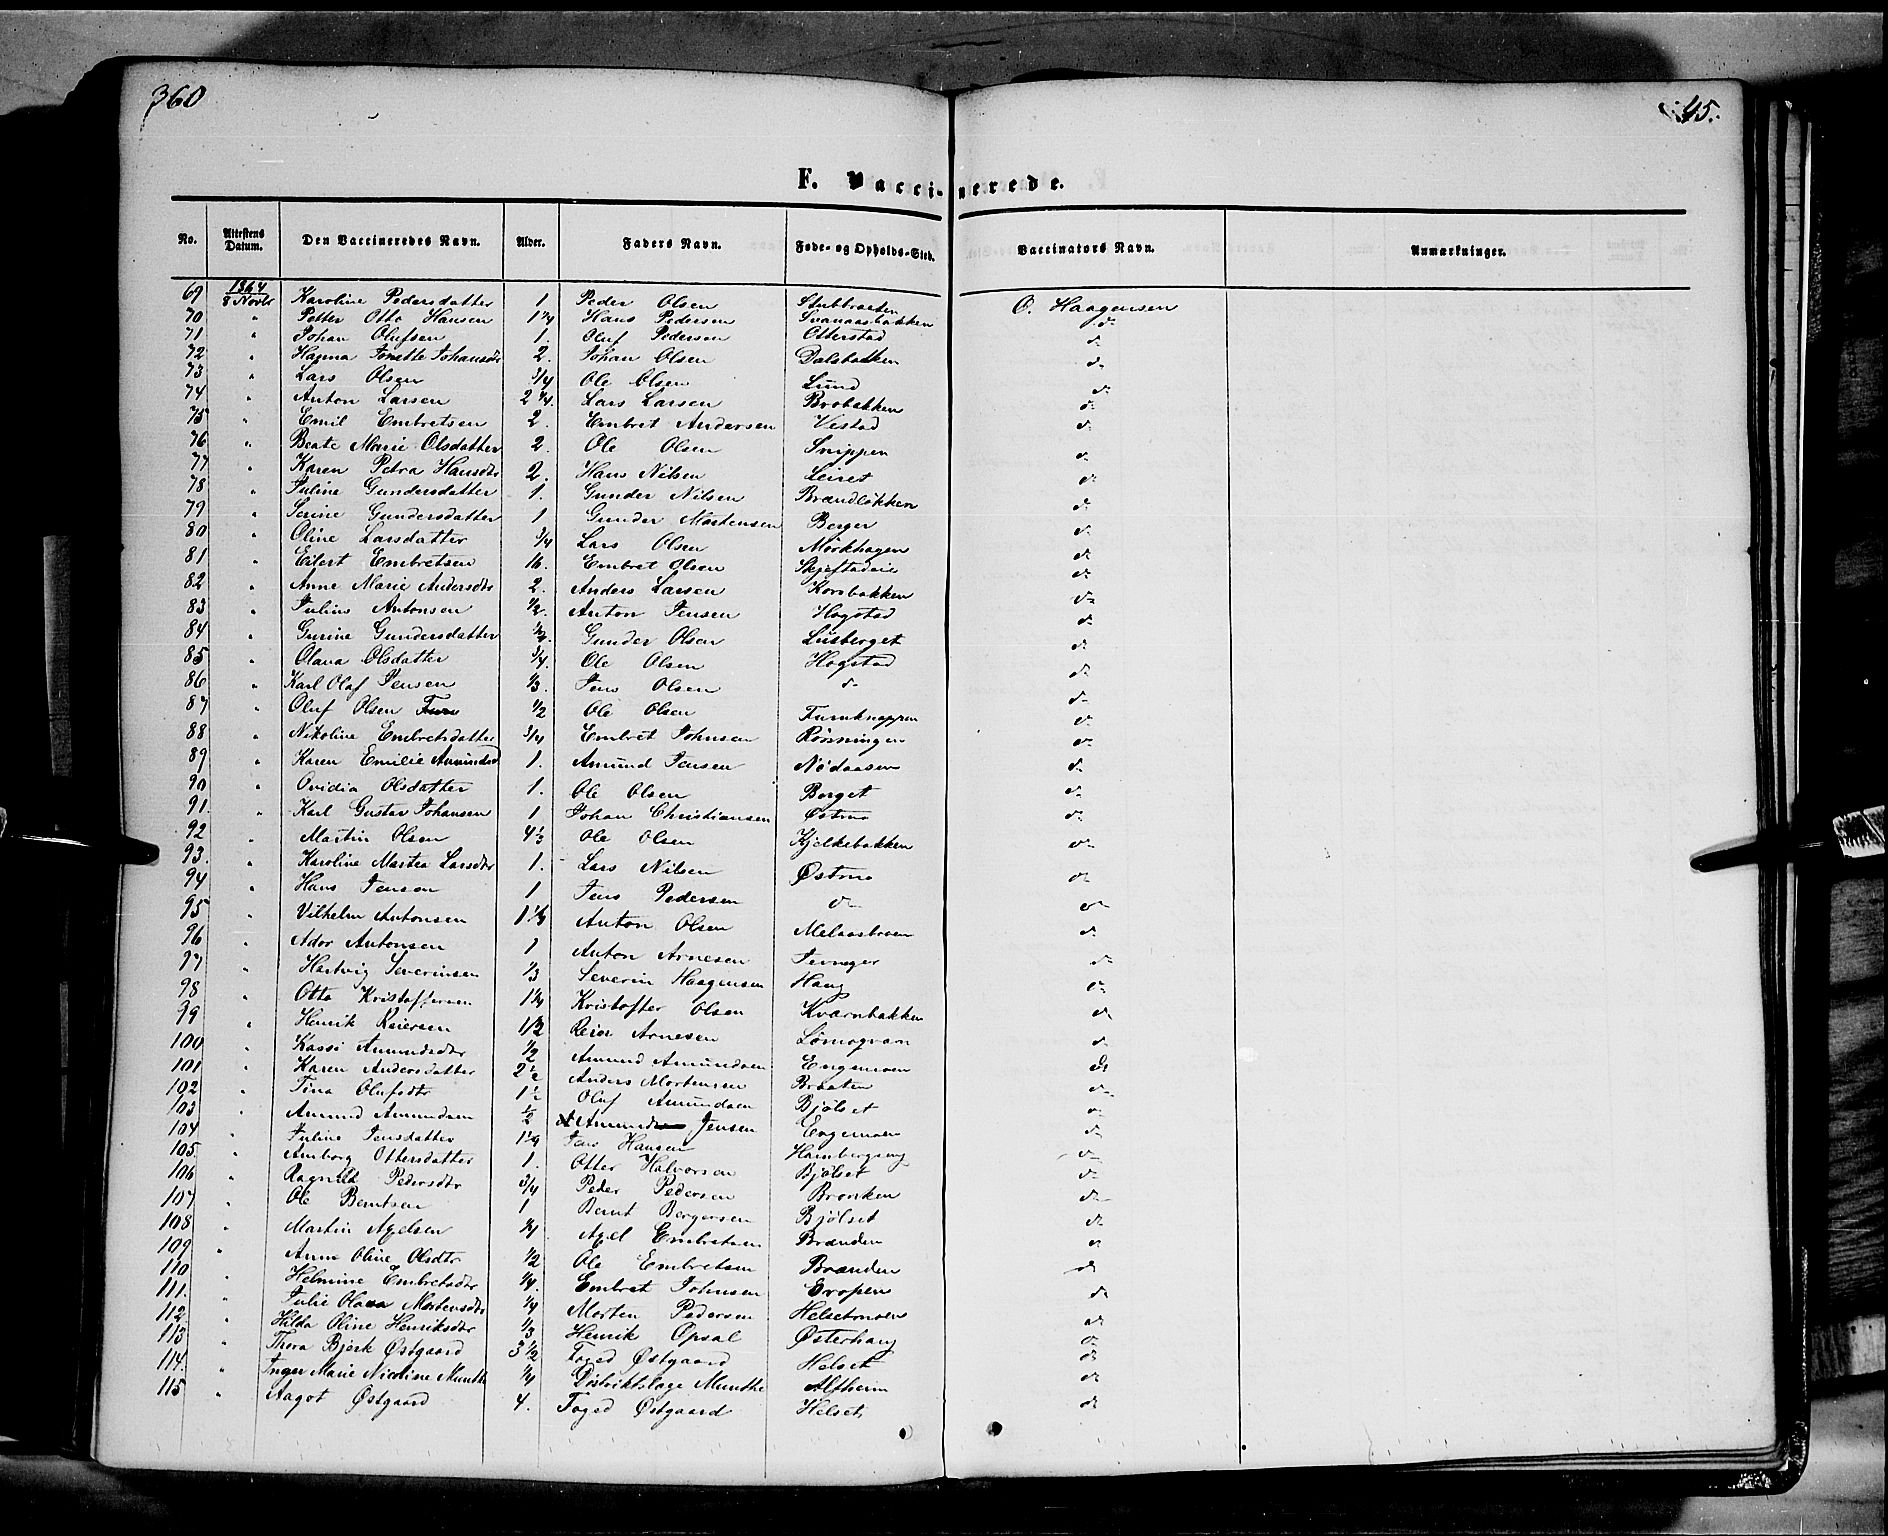 360
45.
F. Vaccinerede.
No. Attestens Datum. Den Vaccineredes Navn. Alder. Faders Navn. Føde- og Opholds-Sted. Vaccinators Navn. Anmærkninger.
69 1864 8 Novbr Karoline Pedersdatter 1. Peder Olsen Stubbraaten O. Haagensen
70 " Petter Otto Hansen 1 1/4 Hans Pedersen Svanaasbakken do
71 " Johan Olufsen 1. Oluf Pedersen Otterstad do
72 " Hanna Jonette Johansdtr 2. Johan Olsen Dalsbakken do
73 " Lars Olsen 3/4 Ole Olsen Lund do
74 " Anton Larsen 2 1/4. Lars Larsen Brobakken do
75 " Emil Embretsen 2. Embret Andersen Vestad do
76 " Beate Marie Olsdatter 2. Ole Olsen Snippen do
77 " Karen Petra Hansdtr 2. Hans Nilsen Leiret do
78 " Juline Gundersdatter 1. Gunder Nilsen Brændløkken do
79 " Serine Gundersdatter 1 Gunder Mortensen Berger do
80 " Oline Larsdatter 3/4 Lars Olsen Mørkhagen do
81 " Eilert Embretsen 16. Embret Olsen do
82 " Anne Marie Andersdtr 2. Anders Larsen Korsbakken do
83 " Julius Antonsen 1/2. Anton Jensen Hogstad do
84 " Gurine Gundersdatter 1/2. Gunder Olsen Lusberget do
85 " Olava Olsdatter 3/4. Ole Olsen Hogstad do
86 " Karl Olaf Jensen 1/3. Jens Olsen do do
87 " Oluf Olsen 1/2 Ole Olsen Furuknappen do
88 " Nikoline Embretsdatter 3/4 Embret Johnsen Rønningen do
89 " Karen Emilie Amundsd 1. Amund Jensen Nødaasen do
90 " Ovidia Olsdatter 1. Ole Olsen Berget do
91. " Karl Gustav Johansen 1 Johan Christiansen Østmo do
92 " Martin Olsen 4 1/3 Ole Olsen Kjølkebakken do
93. " Karoline Martea Larsdtr 1. Lars Nilsen Østmo do
94 " Hans Jenson 1 Jens Pedersen do do
95 " Vilhelm Antonsen 1 1/3 Anton Olsen Melaasbroen do
96 " Ador Antonsen 1 Anton Arnesen do
97 " Hartvig Severinsen 1/3 Severin Haagensen Haug do
98 " Otto Kristoffersen 1 1/4 Kristoffer Olsen Kværnbakken do
99 " Henrik Reiersen 1 1/2 Reier Arnesen do
100 " Kassi Amundsdtr 1/2 Amund Amundsen Engemoen do
101 " Karen Andersdatter 2 1/2 Anders Mortensen Braaten do
102 " Tina Olufsdtr 1 1/2 Oluf Amundsen Bjølset do
103 " Amund Amundsen 1/2 Amund Jensen Engemoen do
104 " Juline Jensdatter 1 1/4 Jens Hansen do
105 " Amborg Ottersdatter 1. Otter Halvorsen Bjølset do
106 " Ragnild Pedersdtr 3/4 Peder Pedersen Bronken do
107 " Ole Berntsen 1 Bernt Bergersen Bjølset do
108 " Martin Axelsen 3/4 Axel Embretsen Brænden do
109 " Anne Oline Olsdtr 1/2 Ole Embretsen Brænden do
110 " Helmine Embretsdtr 1/4. Embret Johnsen Evopen do
111. " Julie Olava Mortensdtr 1/4 Morten Pedersen Helsetmoen do
112 " Hilda Oline Henriksdtr 1/3 Henrik Opsal Østerhaug do
113 " Thora Bjerk Østgaard 3 1/2 Foged Østgaard Helset do
114. " Inger Marie Nicoline Munthe 1/4 Distriktslæge Munthe Alfheim do
115 " Aagot Østgaard 4. Foged Østgaard Helset, do